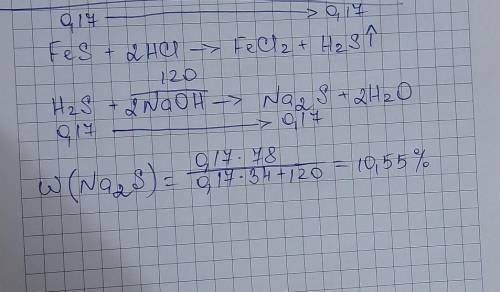 0,17 ⟶ 0,17
FeS + 2HCl → FeCl₂ + H₂S↑
120
H₂S + 2NaOH → Na₂S + 2H₂O
0,17 ⟶ 0,17
W(Na₂S) = 0,17·78 / 0,17·34+120 = 10,55%